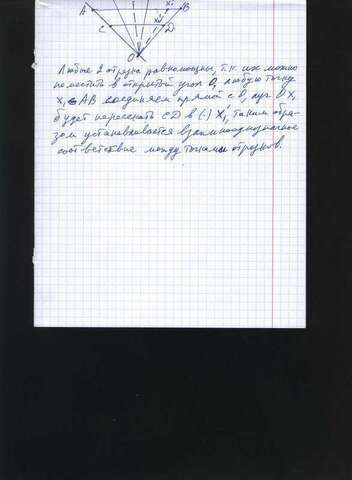 A X₁ B
C X₁' D
O
Любые 2 отрезка равномощны, т.к их можно
поместить в открытый угол O, любую точку
X₁ ∈ AB соединяем прямой с O, луч OX₁
будет пересекать CD в (·) X₁', таким обра-
зом устанавливается взаимнооднозначное
соответствие между точками отрезков.